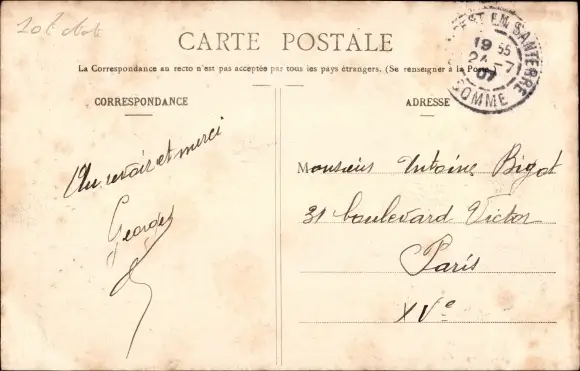 CARTE POSTALE
La Correspondance au recto n'est pas acceptée par tous les pays étrangers. (Se renseigner à la Poste)
CORRESPONDANCE
ADRESSE
EST EN SANTERRE
19 55
24 -7
07
SOMME
Au revoir et merci
Georges
Monsieur Antoine Bigot
31 boulevard Victor
Paris
XVe